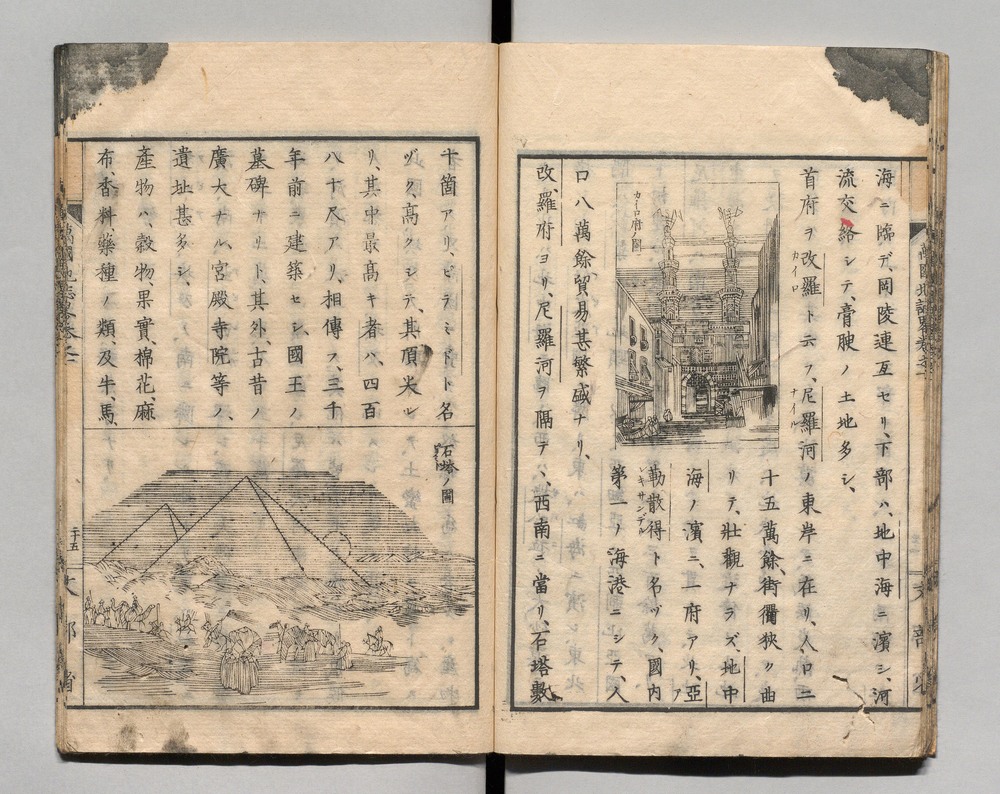 海ニ臨デ、岡陵連亙セリ、下部ハ、地中海ニ濱シ、河
流交絡シテ、膏腴ノ土地多シ、
首府ヲ改羅ト云フ、尼羅河ノ東岸ニ在リ、人口二
カイロ
ナイル
十五萬餘、街衢狹ク曲
リテ、壯觀ナラズ、地中
海ノ濱ニ、一府アリ、亞
勒散得ト名ヅク、國内
レキサンデル
第一ノ海港ニシテ、人
カイロ府ノ圖
口八萬餘、貿易甚繁盛ナリ、
改羅府ヨリ、尼羅河ヲ隔テヽ、西南ニ當リ、石塔數
十箇アリ、ピラミートト名
ヅク、高クシテ、其頂尖レ
リ、其中最高キ者ハ、四百
八十尺アリ、相傳フ、三千
年前ニ建築セシ、國王ノ
墓碑ナリト、其外、古昔ノ
廣大ナル、宮殿寺院等ノ、
遺址甚多シ、
産物ハ、穀物、果實、棉花、麻
布、香料、藥種ノ類、及牛、馬、
石塔ノ圖
二十五
文部省